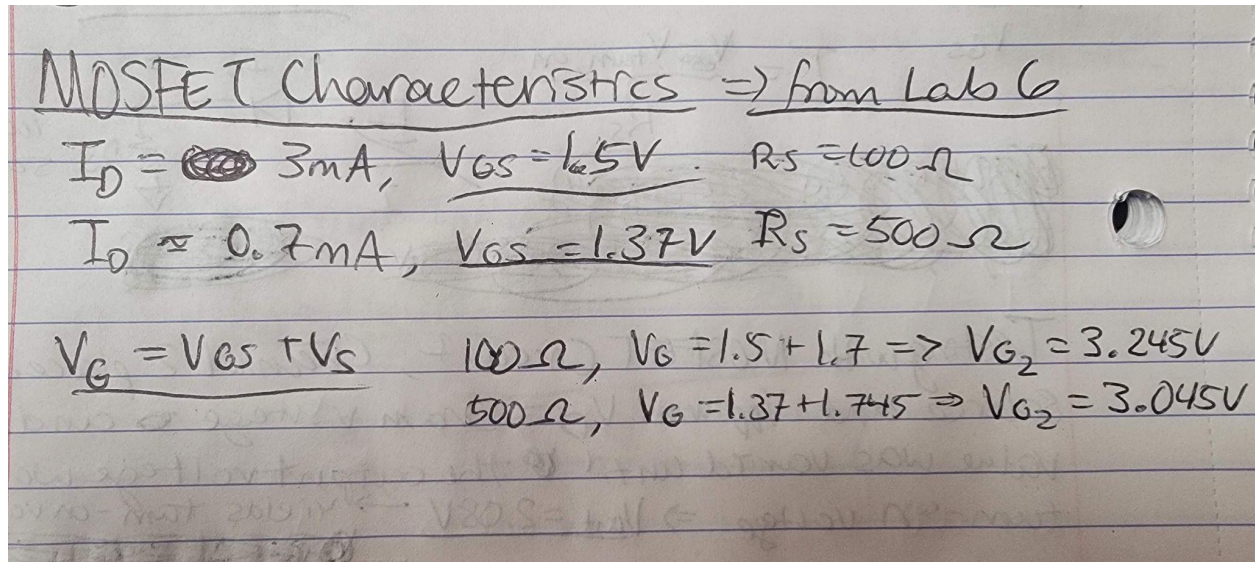 MOSFET Characteristics => from Lab 6
I_D = 3mA, VGS = 1.5V. RS = 100 Ω
I_D ≈ 0.7mA, VGS = 1.37V RS = 500 Ω
V_G = VGS + VS 100Ω, VG = 1.5 + 1.7 => VG₂ = 3.245V
500Ω, VG = 1.37 + 1.745 => VG₂ = 3.045V